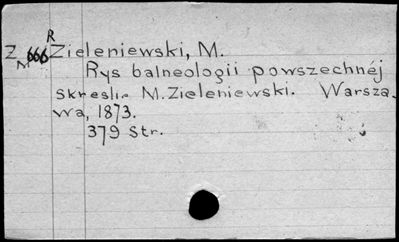 R
Z 666 Zieleniewski, M.
M
Rys balneologii powszechnéj
skreslił M. Zieleniewski. Warsza-
wa, 1873.
379 str.